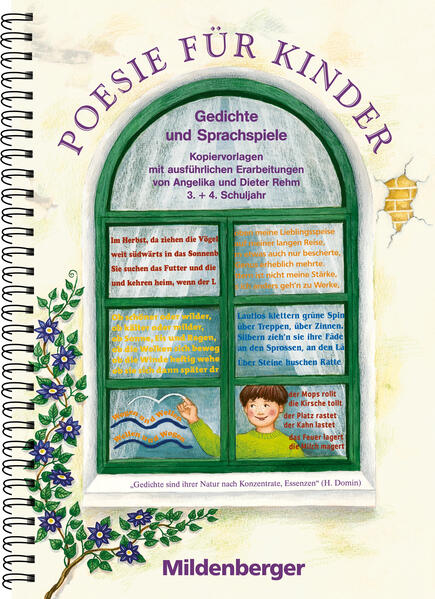 POESIE FÜR KINDER
Gedichte
und Sprachspiele
Kopiervorlagen
mit ausführlichen Erarbeitungen
von Angelika und Dieter Rehm
3. + 4. Schuljahr
Im Herbst, da ziehen die Vögel
weit südwärts in das Sonnenb
Sie suchen das Futter und die
und kehren heim, wenn der L
meine Lieblingspeise
langen Reise,
auch nur bescherte,
erheblich mehrte,
nicht meine Stärke,
geh'n zu Werke,
oder wilder,
oder milder,
und Regen,
ob die Wellen sich beweg
heftig wehe
später dr
Lautlos klettern grüne Spin
über Treppen, über Zinnen.
Silbern zieh'n sie ihre Fäde
an den Sprossen, an den Lä
Über Steine huschen Ratte
Wind und Wogen
der Mops rollt
die Kirsche tollt
der Platz rastet
der Kahn lastet
das Feuer lagert
die Milch magert
„Gedichte sind ihrer Natur nach Konzentrate, Essenzen“ (H. Domin)
Mildenberger